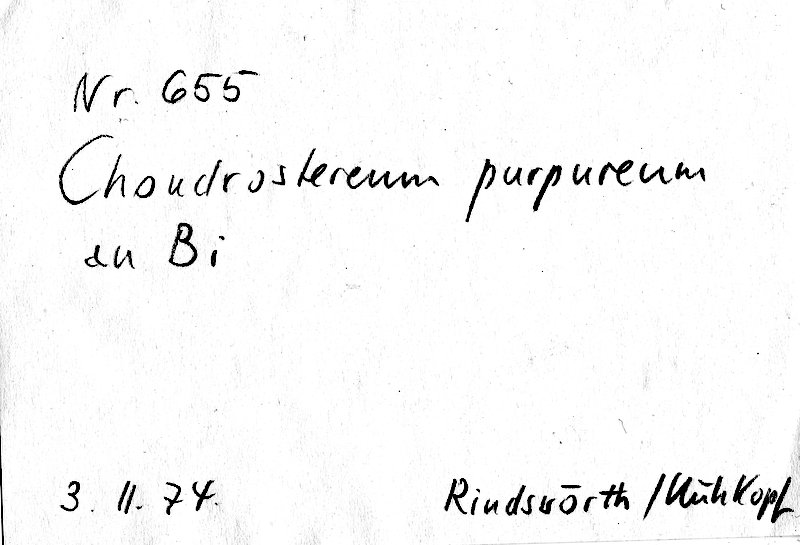 Nr. 655
Chondrostereum purpureum
an Bi
3. 11. 74. Rindswörth / Kühkopf